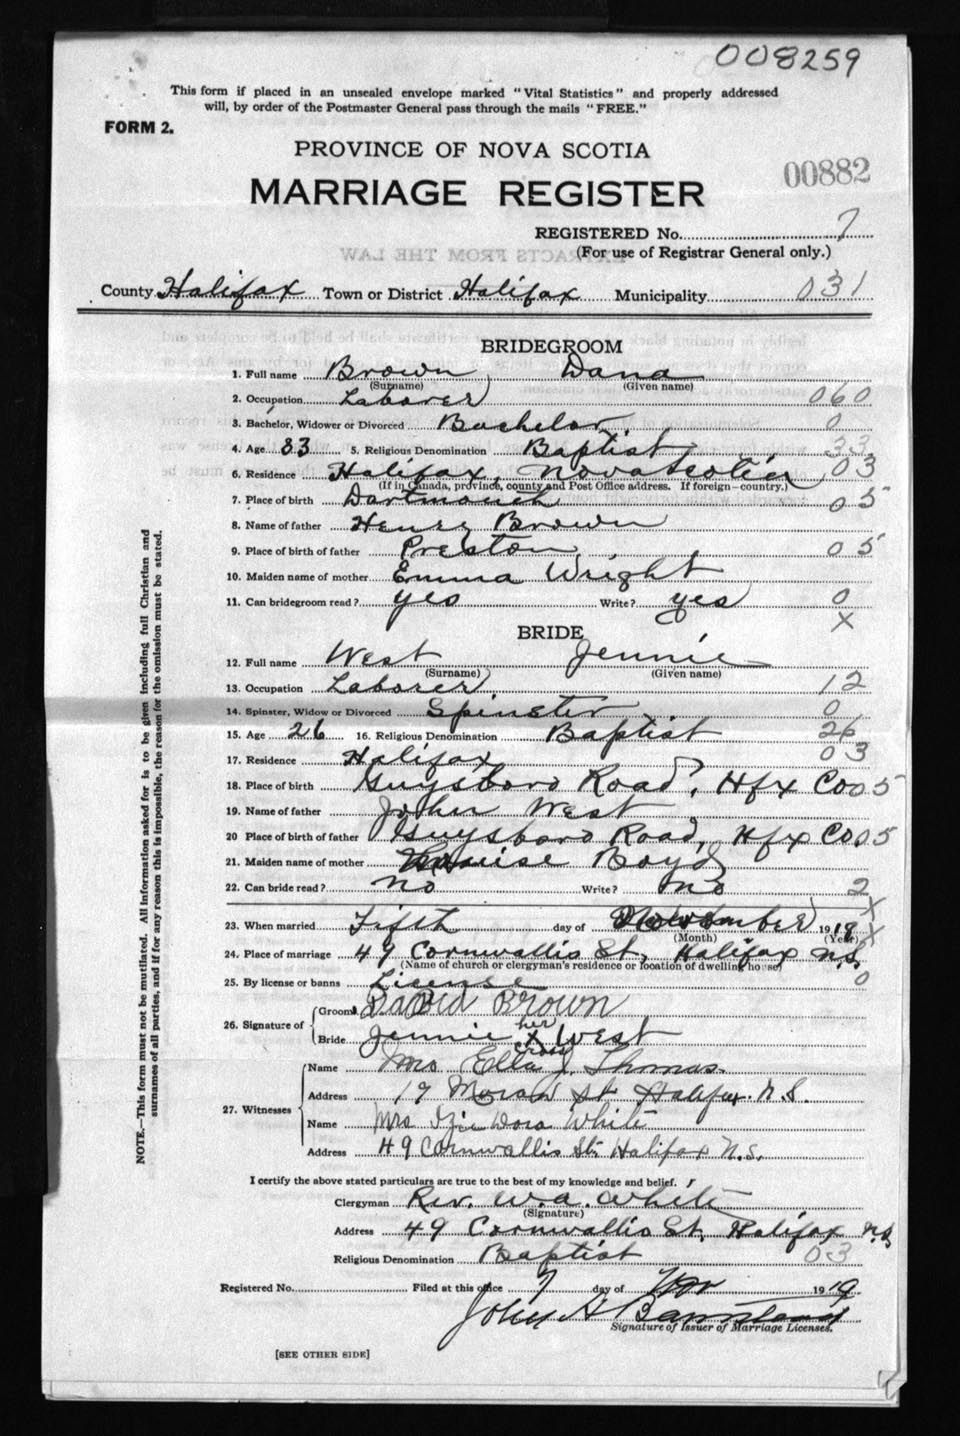 008259
This form if placed in an unsealed envelope marked "Vital Statistics" and properly addressed
will, by order of the Postmaster General pass through the mails "FREE."
FORM 2.
PROVINCE OF NOVA SCOTIA
00882
MARRIAGE REGISTER
REGISTERED No. 7
(For use of Registrar General only.)
County Halifax Town or District Halifax Municipality 031
BRIDEGROOM
1. Full name Brown, Dana
(Surname) (Given name)
2. Occupation Laborer 060
3. Bachelor, Widower or Divorced Bachelor. 0
4. Age 33 5. Religious Denomination Baptist 33
6. Residence Halifax, Nova Scotia 03
(If in Canada, province, county and Post Office address. If foreign—country.)
7. Place of birth Dartmouth 05
8. Name of father Henry Brown
9. Place of birth of father Preston 05
10. Maiden name of mother Emma Wright
11. Can bridegroom read? yes Write? yes 0
X
BRIDE
12. Full name West Jennie
(Surname) (Given name)
13. Occupation Laborer. 12
14. Spinster, Widow or Divorced Spinster 0
15. Age 26 16. Religious Denomination Baptist 26
17. Residence Halifax 03
18. Place of birth Guysboro Road, Hfx Co 05
19. Name of father John West
20 Place of birth of father Guysboro Road, Hfx Co 05
21. Maiden name of mother Louise Boyd
22. Can bride read? no Write? no 2
X
23. When married Fifth day of November 1918 X
(Month) (Year)
24. Place of marriage 49 Cornwallis St, Halifax N.S.
(Name of church or clergyman's residence or location of dwelling house)
25. By license or banns License 0
26. Signature of
Groom Brown
Bride Jennie her X cross West
27. Witnesses
Name Mrs. Ella J. Thomas.
Address 19 St Halifax. N.S.
Name Mrs Dora White
Address 49 Cornwallis St. Halifax N.S.
I certify the above stated particulars are true to the best of my knowledge and belief.
Clergyman Rev. W.A. White
(Signature)
Address 49 Cornwallis St, Halifax N.S.
Religious Denomination Baptist 03
Registered No. Filed at this office 7 day of Nov 1919
John H
Signature of Issuer of Marriage Licenses.
[SEE OTHER SIDE]
NOTE.—This form must not be mutilated. All information asked for is to be given including full Christian and
surnames of all parties, and if for any reason this is impossible, the reason for the omission must be stated.